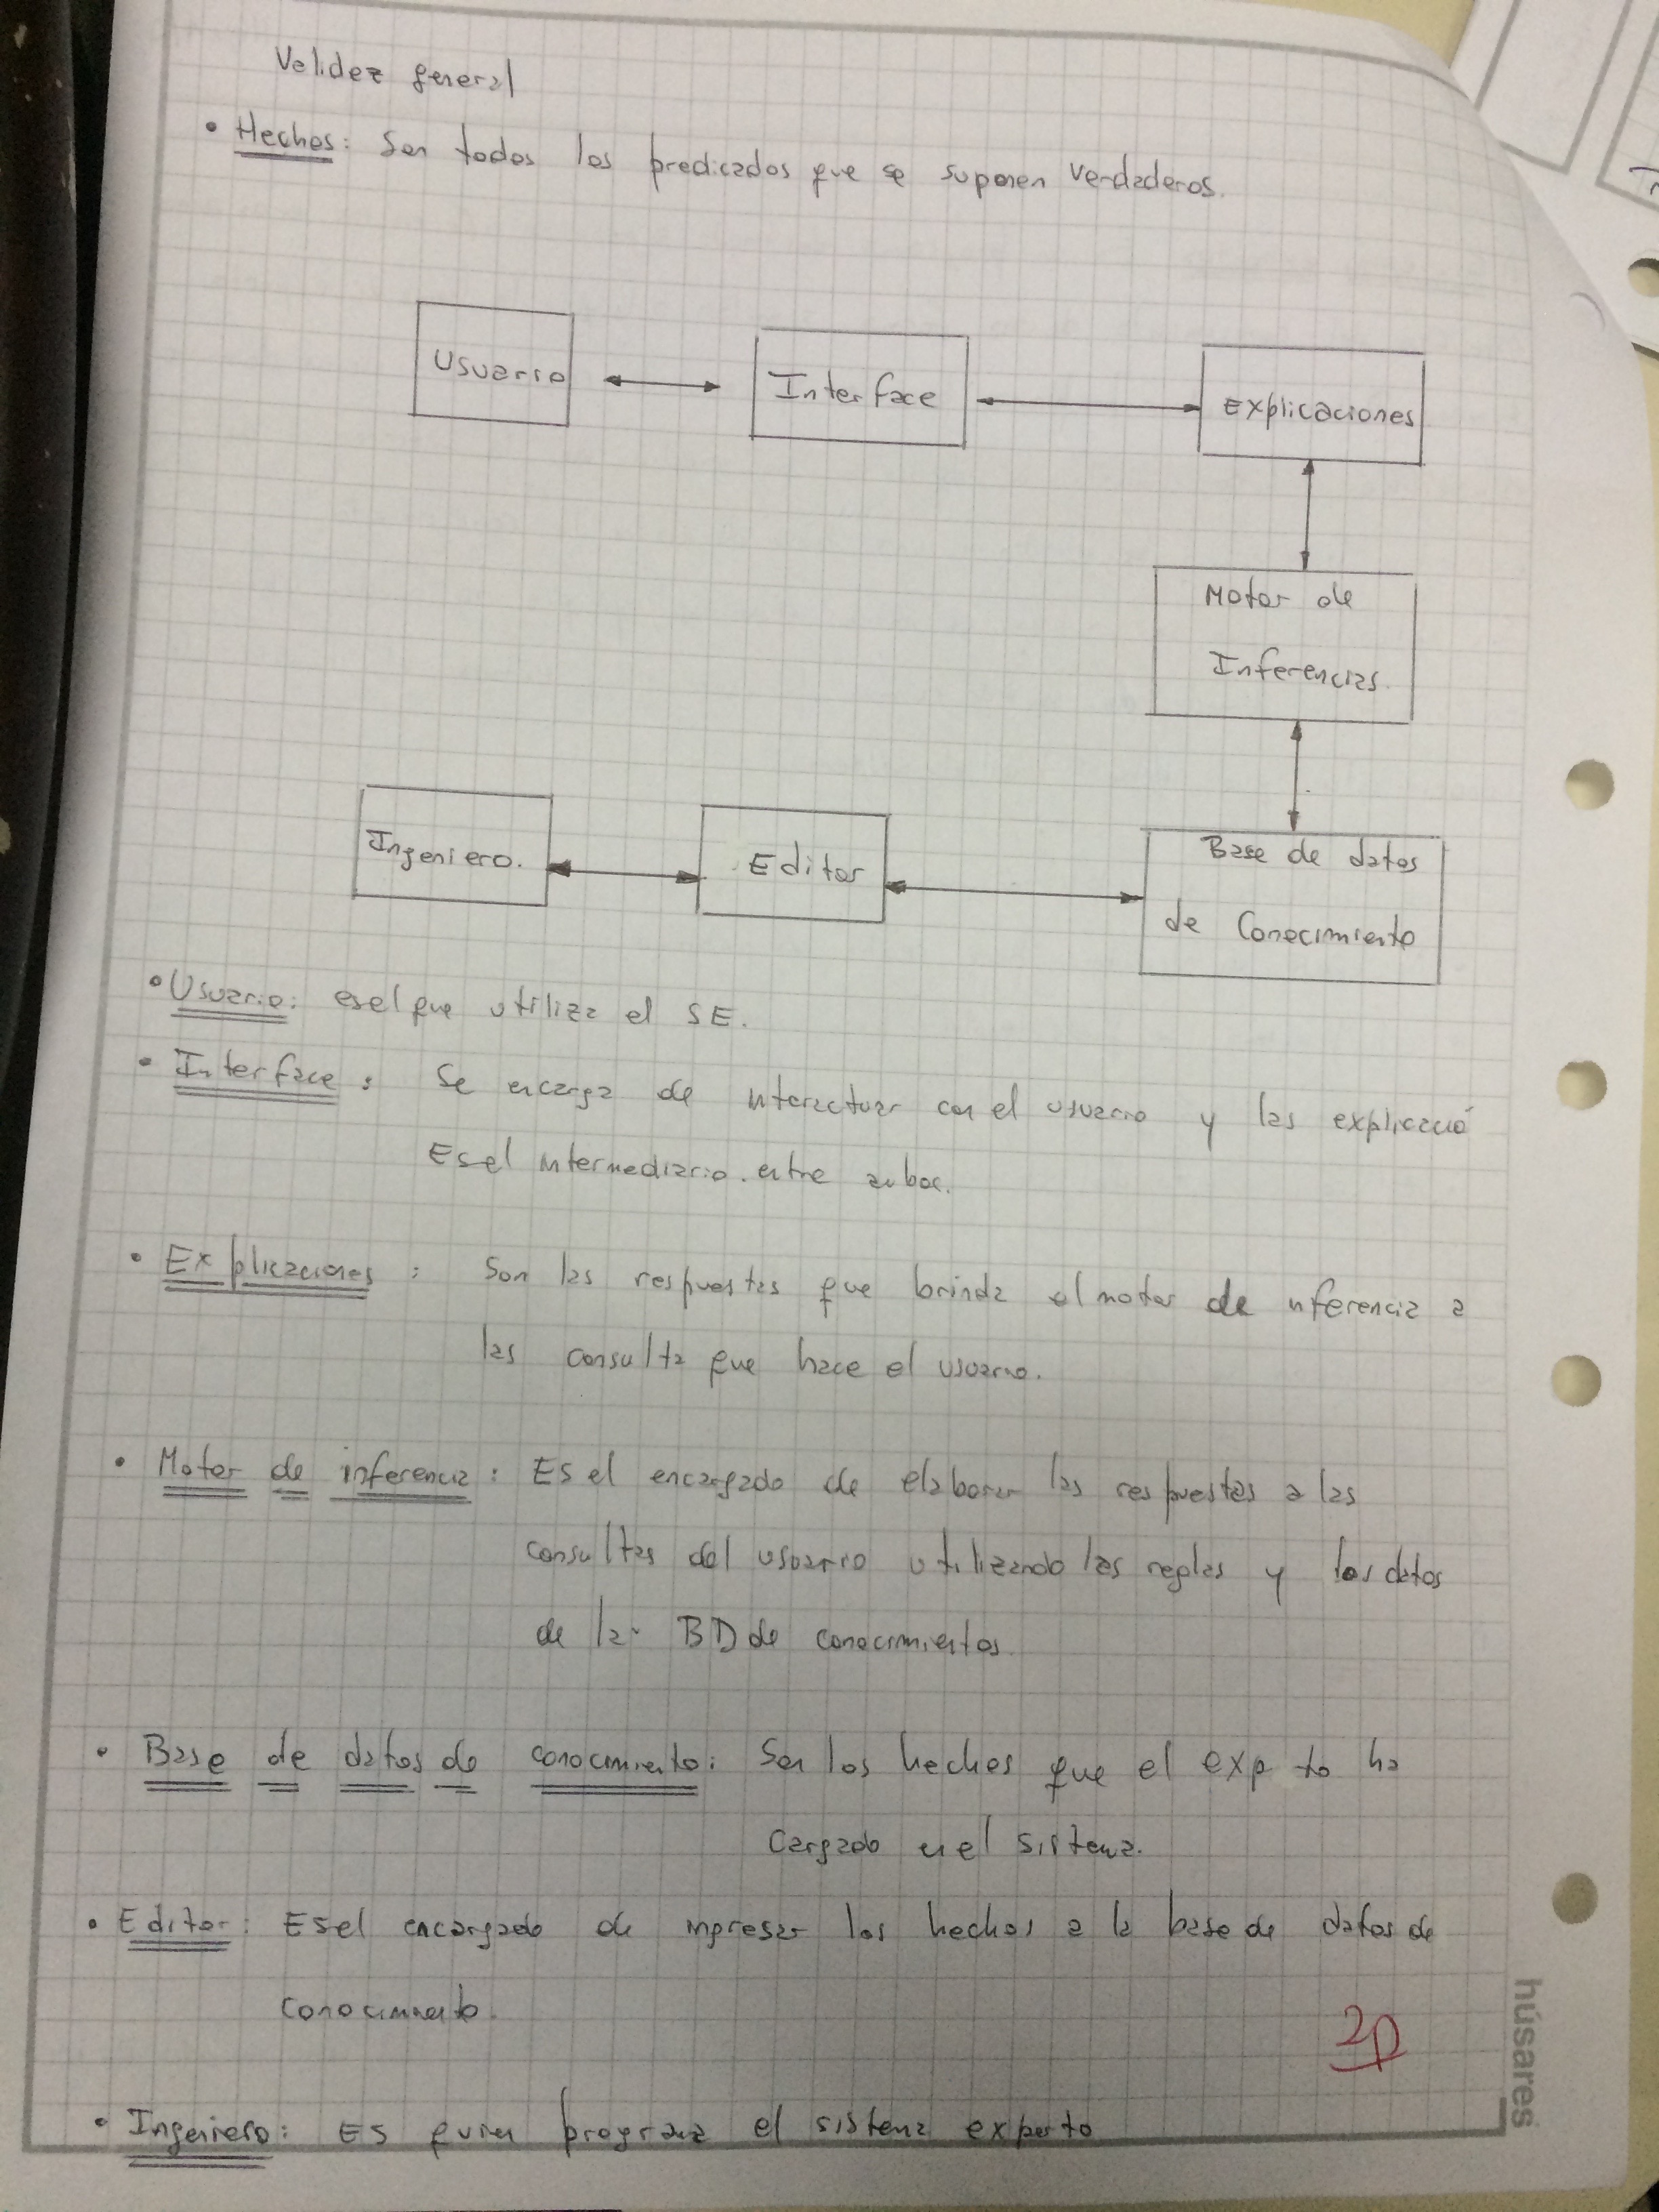 Validez general
• Hechos: Son todos los predicados que se suponen verdaderos.
Usuario
Interface
Explicaciones
Motor de
Inferencias.
Ingeniero.
Editor
Base de datos
de Conocimiento
• Usuario: es el que utiliza el SE.
• Interface: Se encarga de interactuar con el usuario y las explicacio
Es el intermediario. entre ambos.
• Explicaciones: Son las respuestas que brinda el motor de inferencia a
las consulta que hace el usuario.
• Motor de inferencia: Es el encargado de elaborar las respuestas a las
consultas del usuario utilizando las reglas y los datos
de la BD de conocimientos
• Base de datos de conocimiento: Son los hechos que el exp to ha
Cargado en el sistema.
• Editor: Es el encargado de ingresar los hechos a la base de datos de
conocimiento.
2p
• Ingeniero: Es quien programa el sistema experto
húsares